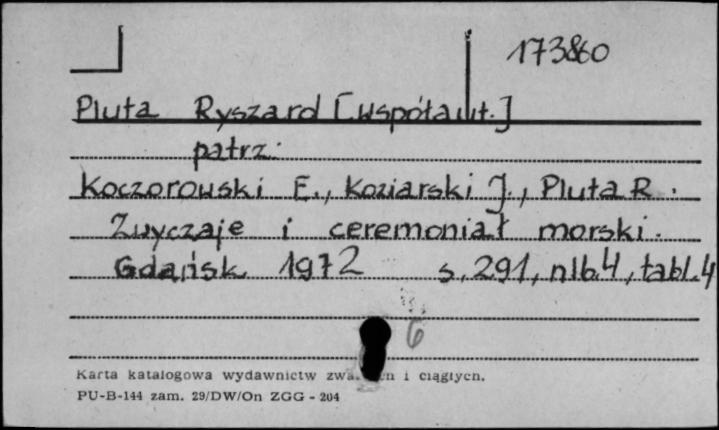 173860
Pluta Ryszard [współaut.]
patrz:
Koczorowski E., Koziarski J., Pluta R.
Zwyczaje i ceremoniał morski.
Gdańsk 1972 s. 291, nlb. 4, tabl. 4
6
Karta katalogowa wydawnictw i ciągłych.
PU-B-144 zam. 29/DW/On ZGG - 204